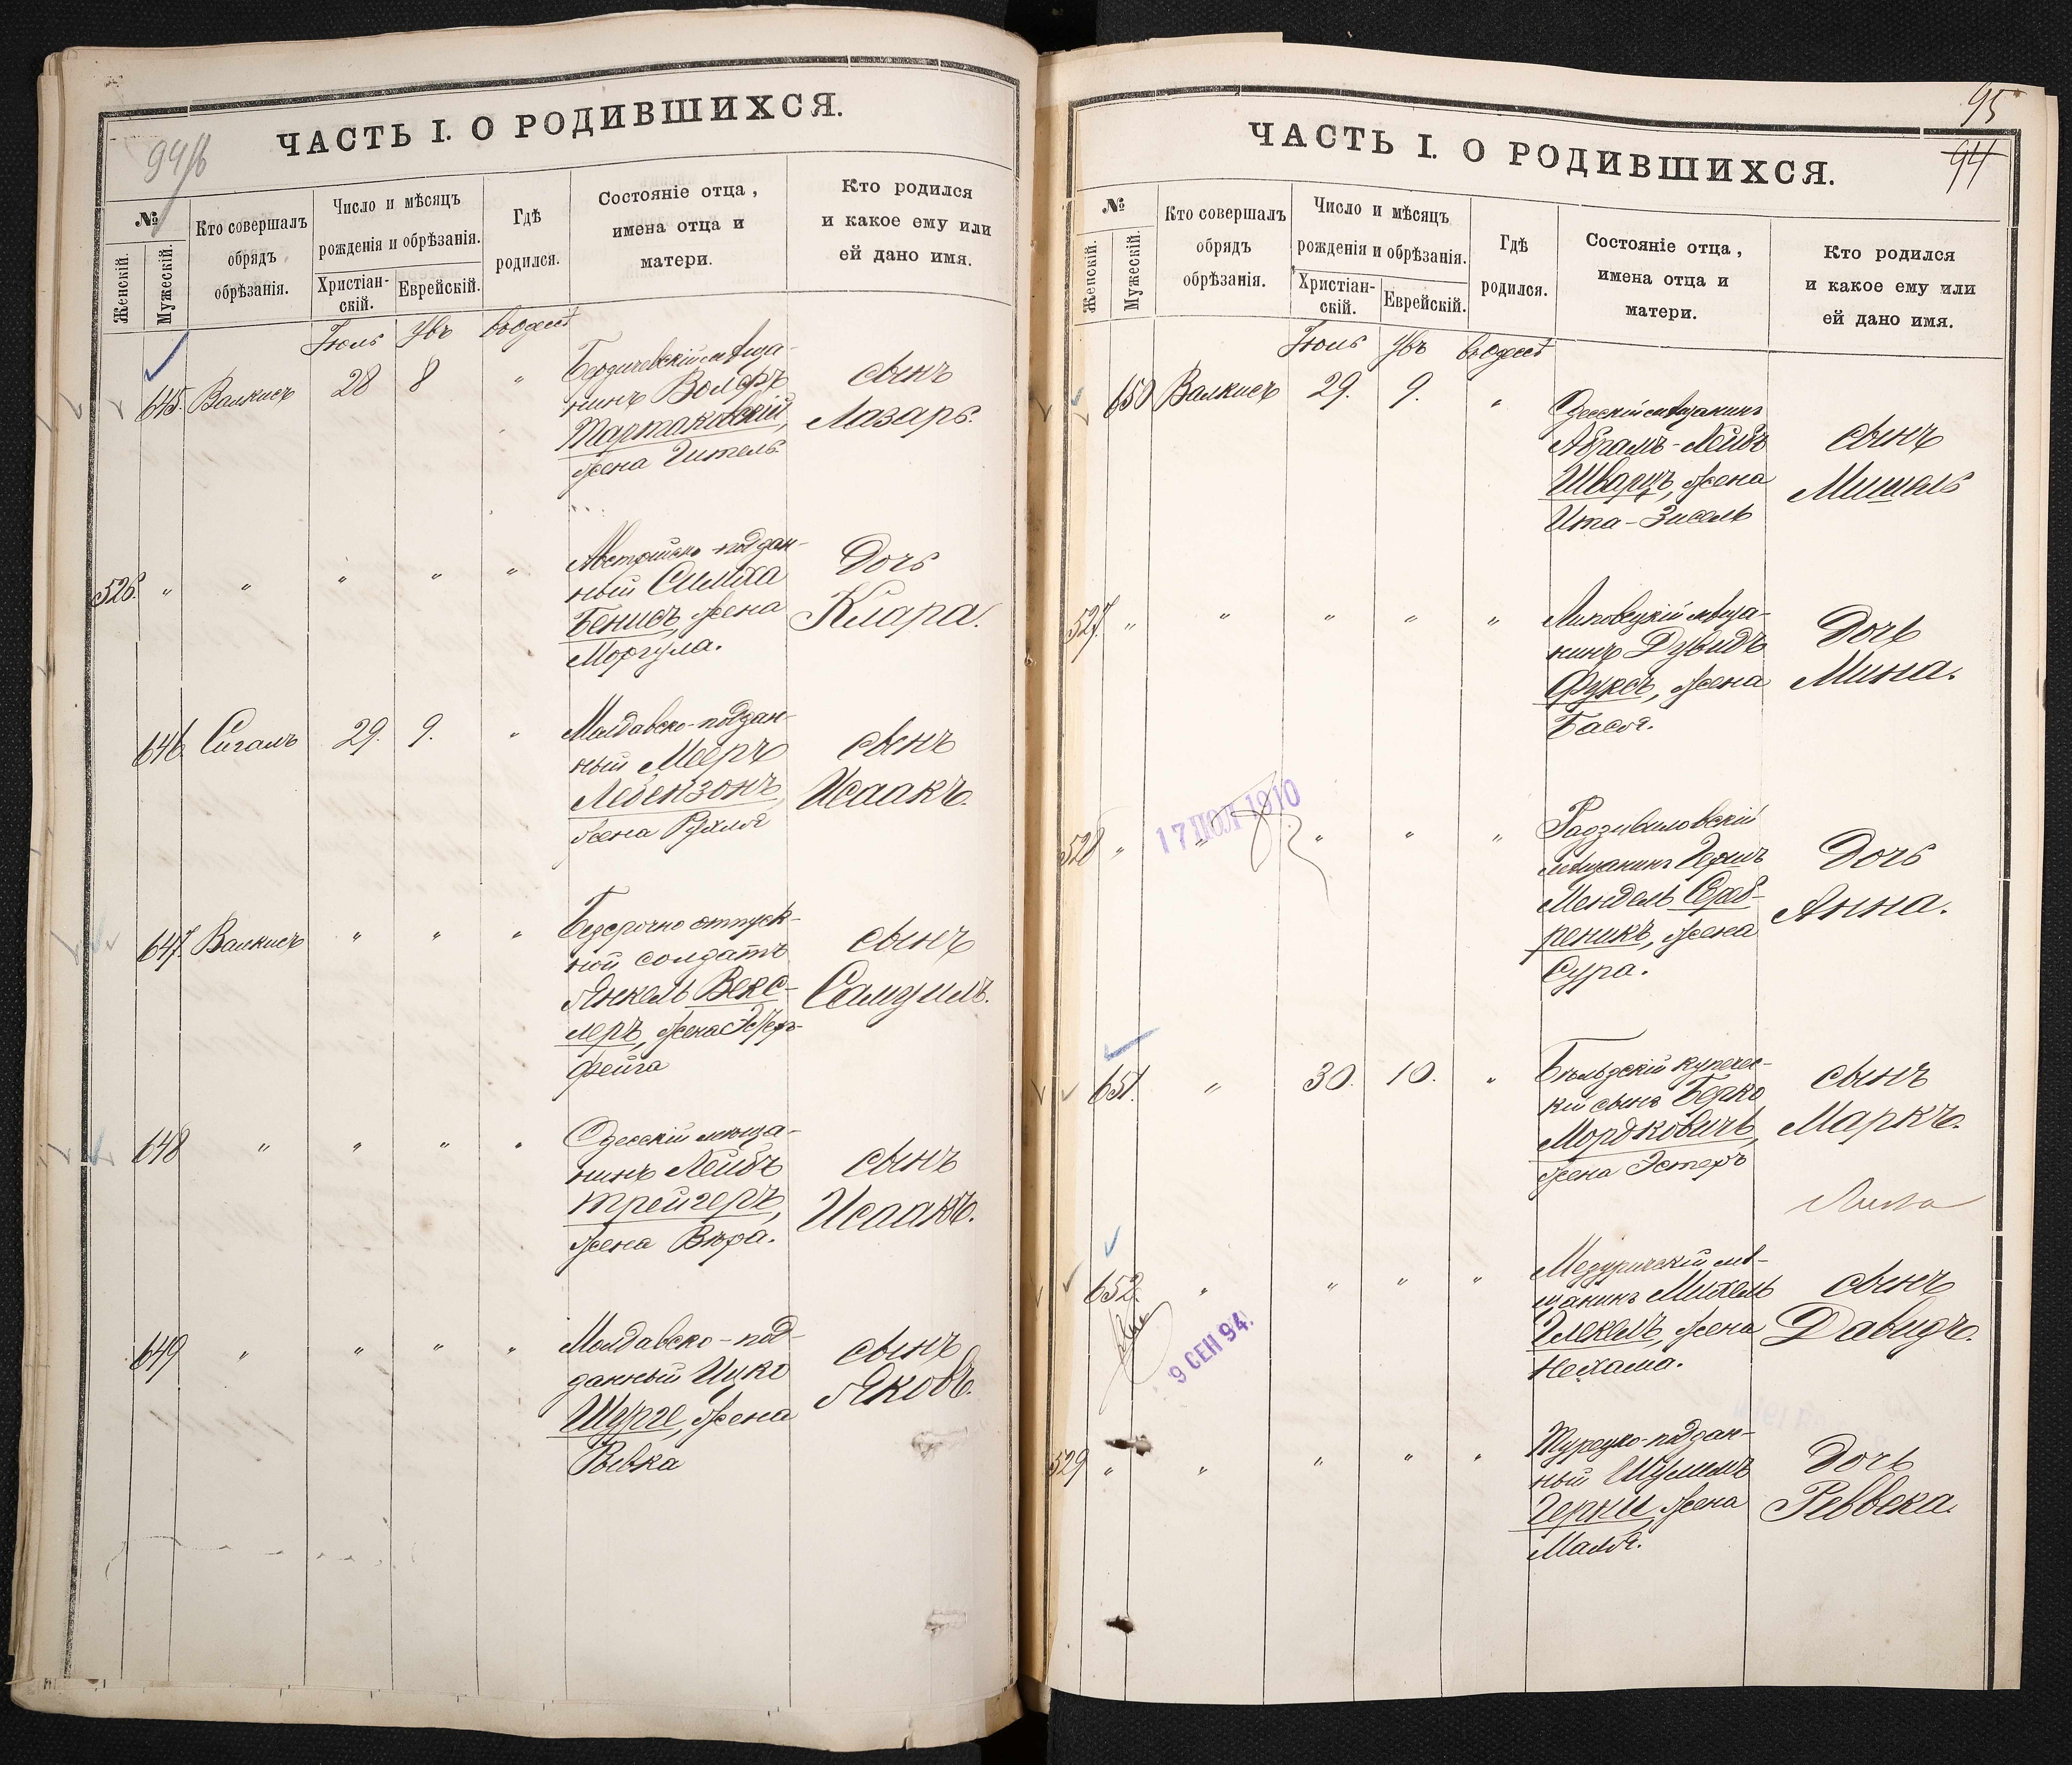 ЧАСТЬ I. О РОДИВШИХСЯ.
94/б
№
Женскій.
Мужескій.
Кто совершалъ
обрядъ
обрѣзанія.
Число и мѣсяцъ
рожденія и обрѣзанія.
Христіан-
скій.
Еврейскій.
Гдѣ
родился.
Состояніе отца,
имена отца и
матери.
Кто родился
и какое ему или
ей дано имя.
Іюль Увъ въ Одессѣ
645. Валкисъ 28 8 "
Бердичевскій мѣща-
нинъ Вольфъ
Тартаковскій,
жена Гитель
сынъ
Лазарь.
526. " " " " "
Австрійско-поддан-
ный Симха
Бенисъ, жена
Моргула.
Дочь
Клара.
646. Сигалъ 29. 9. "
Молдавско-поддан-
ный Мееръ
Лебензонъ,
жена Рухля
сынъ
Исаакъ.
647. Валкисъ " " "
Безсрочно отпуск-
ной солдатъ
Янкель Векс-
леръ, жена
Фейга
сынъ
Самуилъ.
648 " " " "
Одесскій мѣща-
нинъ Лейбъ
Трейгеръ,
жена Вѣра.
сынъ
Исаакъ.
649 " " " "
Молдавско-под-
данный Ицко
Шурге, жена
Ривка
сынъ
Яковъ.
95
94
ЧАСТЬ I. О РОДИВШИХСЯ.
№
Женскій.
Мужескій.
Кто совершалъ
обрядъ
обрѣзанія.
Число и мѣсяцъ
рожденія и обрѣзанія.
Христіан-
скій.
Еврейскій.
Гдѣ
родился.
Состояніе отца,
имена отца и
матери.
Кто родился
и какое ему или
ей дано имя.
Іюль Увъ въ Одессѣ
650 Валкисъ 29. 9. "
Одесскій мѣщанинъ
Абрамъ-Лейбъ
Шварцъ, жена
Ита-Зисель
сынъ
Мишель
527. " " " " "
Липовецкій мѣща-
нинъ Дувидъ
Фуксъ, жена
Бася.
Дочь
Мина.
17 ІЮЛ 1910
528 " " " " "
Радзивиловскій
мѣщанинъ Гершъ
Мендель Сереб-
реникъ, жена
Сура.
Дочь
Анна.
651. " 30. 10. "
Бѣльдскій купечес-
кій сынъ Берко
Мордковичъ,
жена Эстеръ
сынъ
Маркъ.
652. " " " "
9 СЕН 94.
мѣ-
щанинъ Михель
Глекель, жена
Нехама.
сынъ
Давидъ.
529 " " " " "
Турецко-поддан-
ный Шулимъ
Герни, жена
Маля.
Дочь
Ревека.